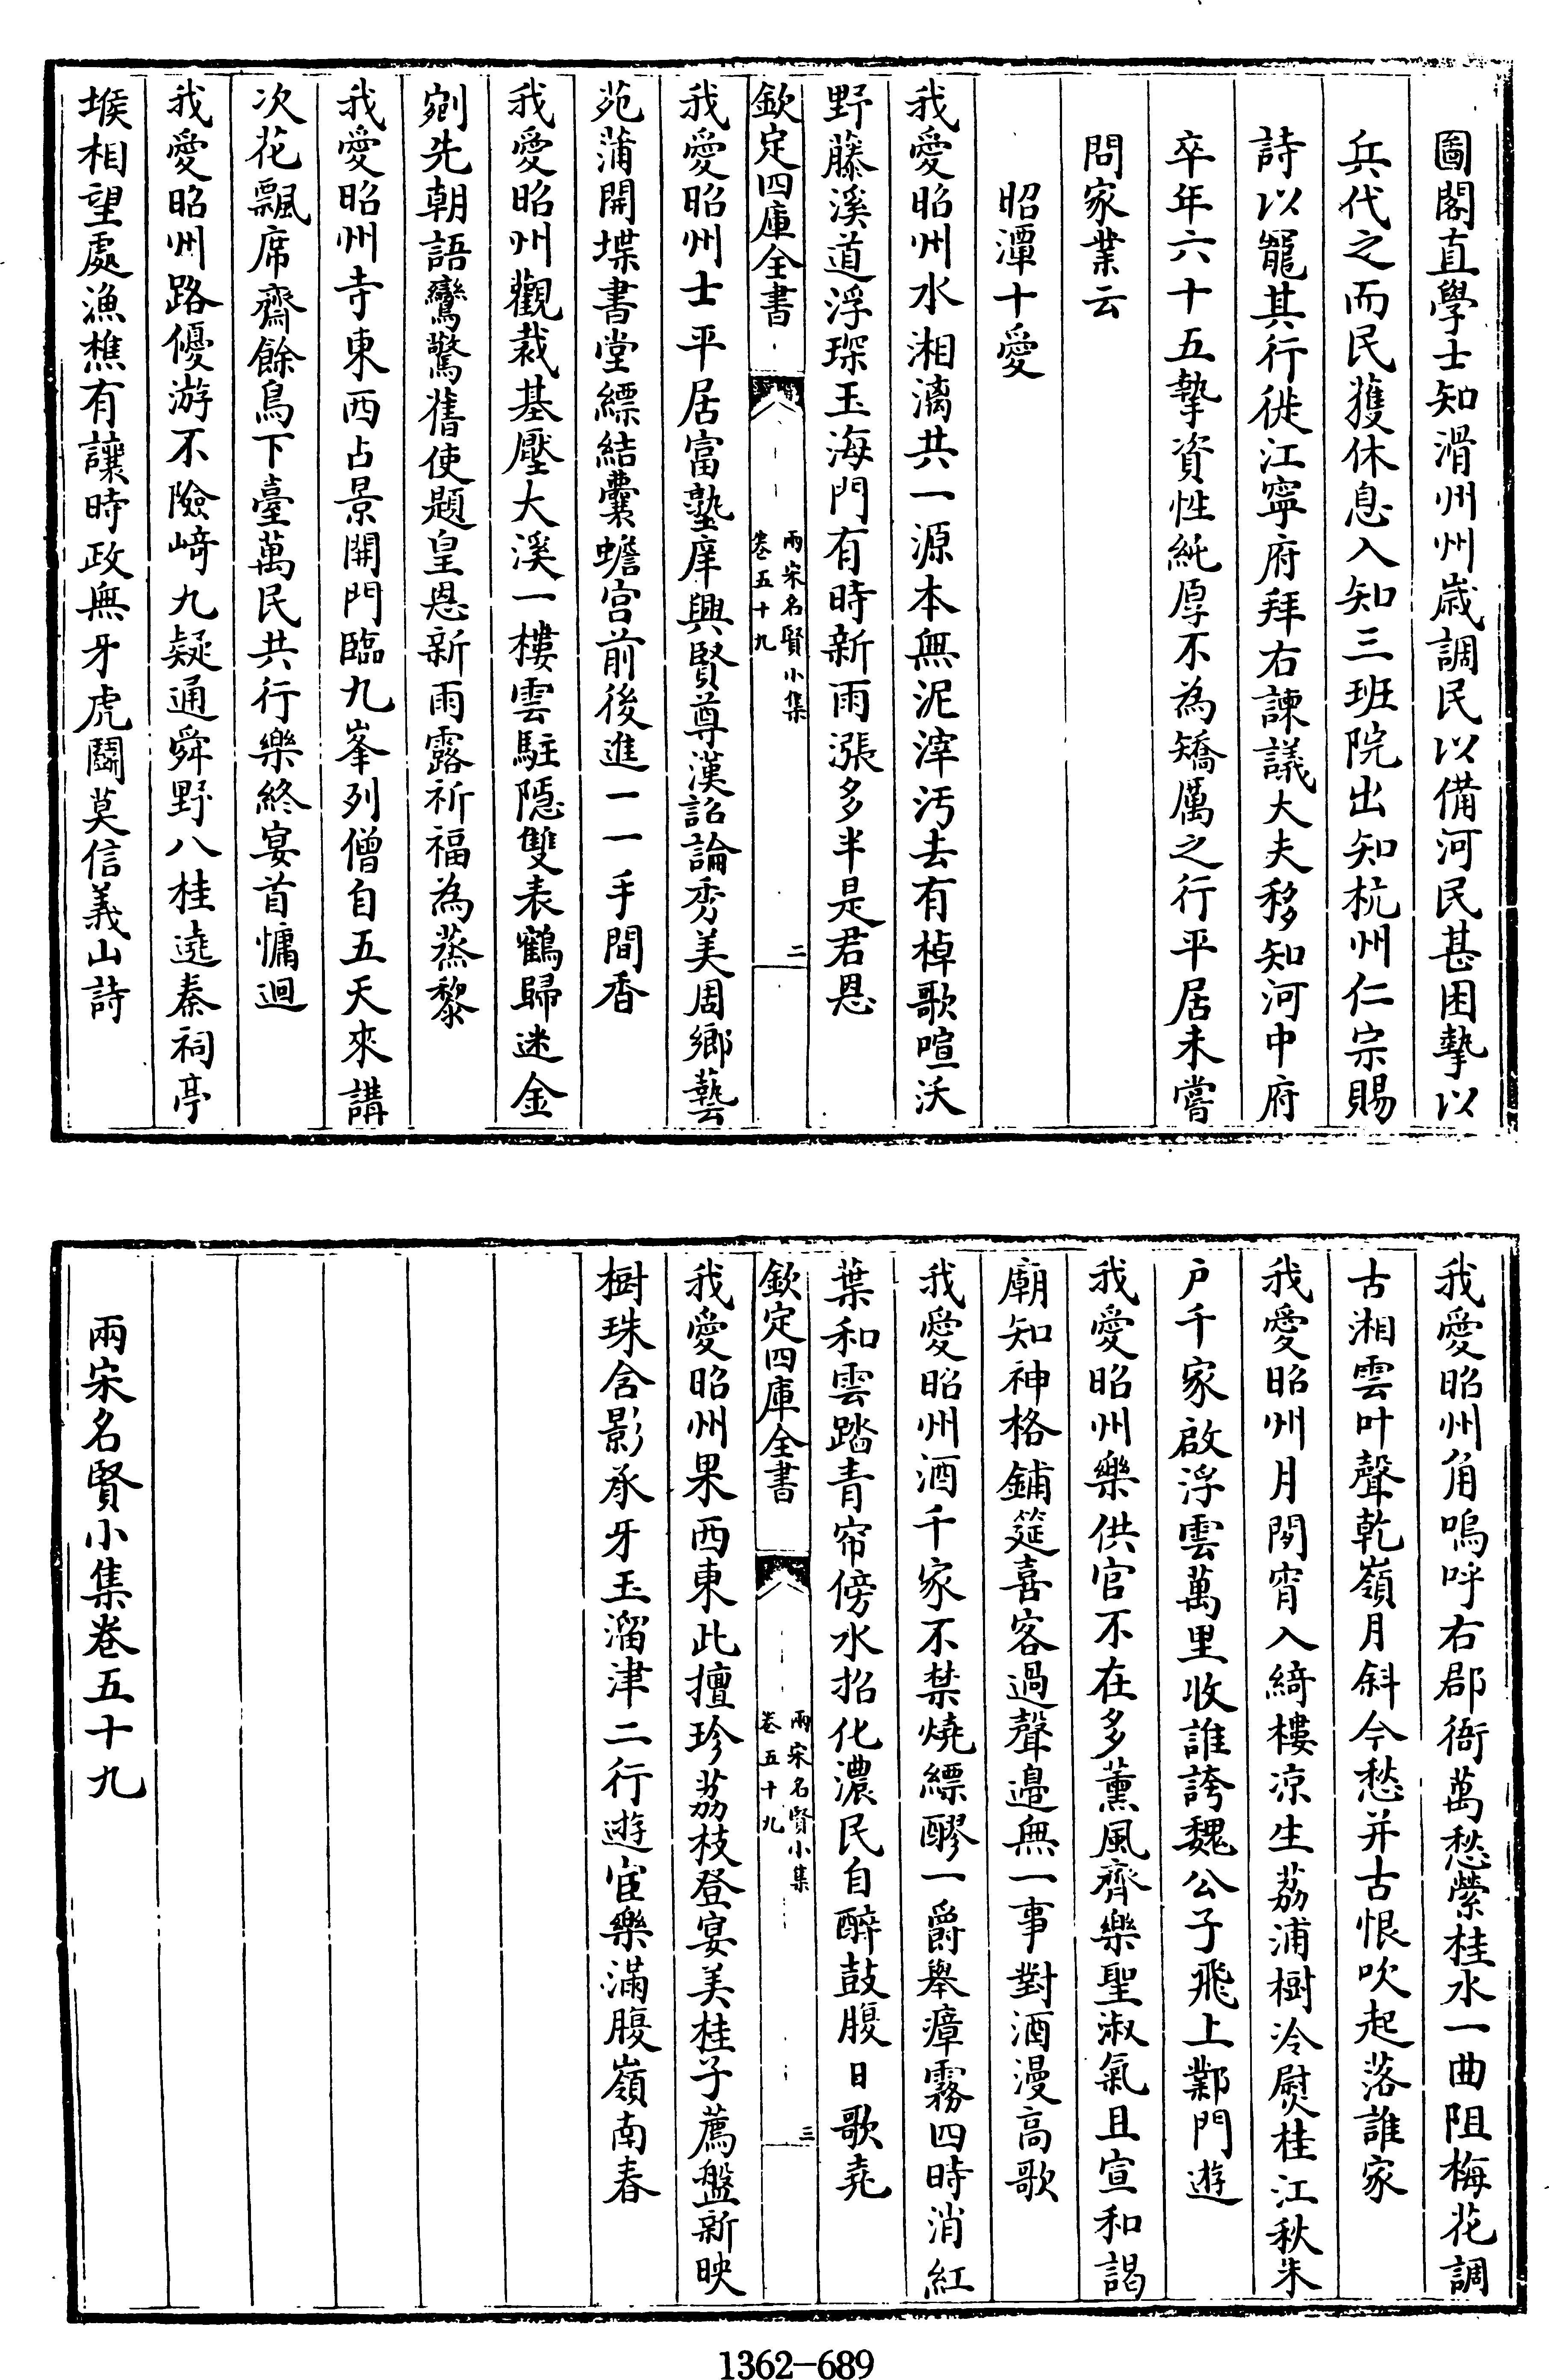 圖閣直學士知滑州州歲調民以備河民甚困摯以
兵代之而民獲休息入知三班院出知杭州仁宗賜
詩以寵其行徙江寧府拜右諫議大夫移知河中府
卒年六十五摯資性純厚不為矯厲之行平居未嘗
問家業云
昭潭十愛
我愛昭州水湘漓共一源本無泥滓汚去有棹歌喧沃
野藤溪道浮琛玉海門有時新雨漲多半是君恩
欽定四庫全書
兩宋名賢小集
卷五十九
二
我愛昭州士平居富塾庠興賢尊漢詔論秀美周鄉藝
苑蒲開堞書堂縹結囊蟾宮前後進一一手間香
我愛昭州觀裁基壓大溪一樓雲駐隱雙表鶴歸迷金
剜先朝語鸞驚舊使題皇恩新雨露祈福為蒸黎
我愛昭州寺東西占景開門臨九峯列僧自五天來講
次花飄席齋餘鳥下臺萬民共行樂終宴首慵迴
我愛昭州路優游不險崎九疑通舜野八桂遶秦祠亭
堠相望處漁樵有讓時政無牙虎鬬莫信義山詩
我愛昭州角嗚呼右郡衙萬愁縈桂水一曲阻梅花調
古湘雲叶聲乾嶺月斜今愁并古恨吹起落誰家
我愛昭州月閒宵入綺樓凉生荔浦樹冷慰桂江秋朱
戶千家啟浮雲萬里收誰誇魏公子飛上鄴門遊
我愛昭州樂供官不在多薰風齊樂聖淑氣且宣和謁
廟知神格鋪筵喜客過聲邉無一事對酒漫高歌
我愛昭州酒千家不禁燒縹醪一爵舉瘴霧四時消紅
葉和雲踏青帘傍水招化濃民自醉鼓腹日歌堯
欽定四庫全書
兩宋名賢小集
卷五十九
三
我愛昭州果西東此擅珍荔枝登宴美桂子薦盤新映
樹珠含影承牙玉溜津二行遊宦樂滿腹嶺南春
兩宋名賢小集卷五十九
1362-689